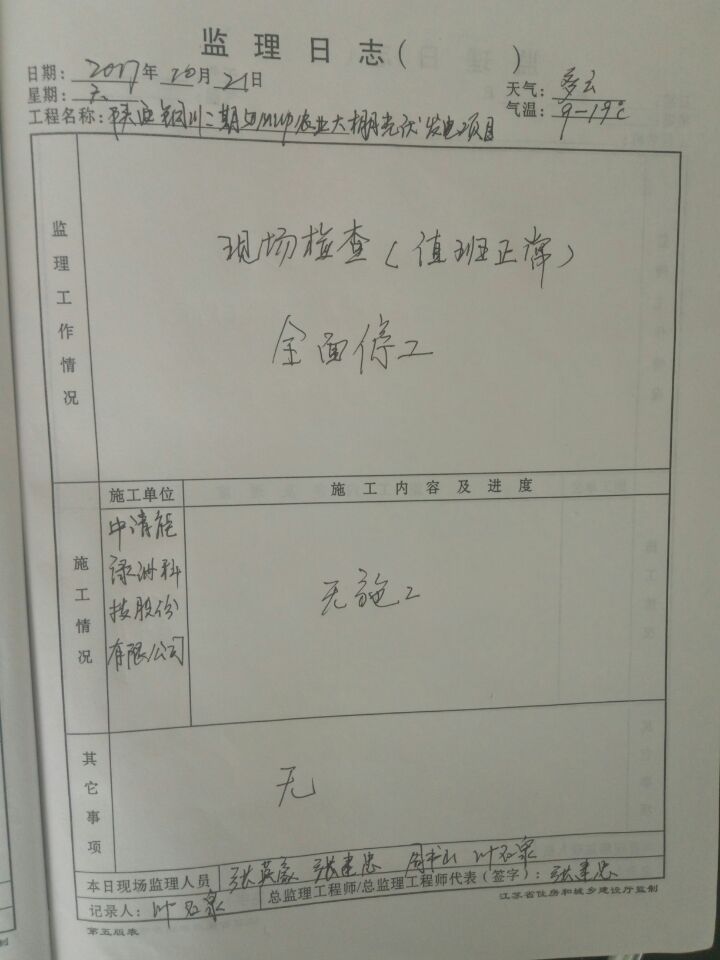 监理日志（ ）
日期：2017年10月21日
星期：六
天气：多云
气温：9-19℃
工程名称：陕西铜川二期50MWp农业大棚光伏发电项目
监理工作情况
现场检查（值班正常）
全面停工
施工情况
施工单位
施工内容及进度
中清能
绿洲科
技股份
有限公司
无施工
其它事项
无
本日现场监理人员 张英 张建忠 叶石泉
记录人：叶石泉
总监理工程师/总监理工程师代表（签字）：张建忠
第五版表
江苏省住房和城乡建设厅监制